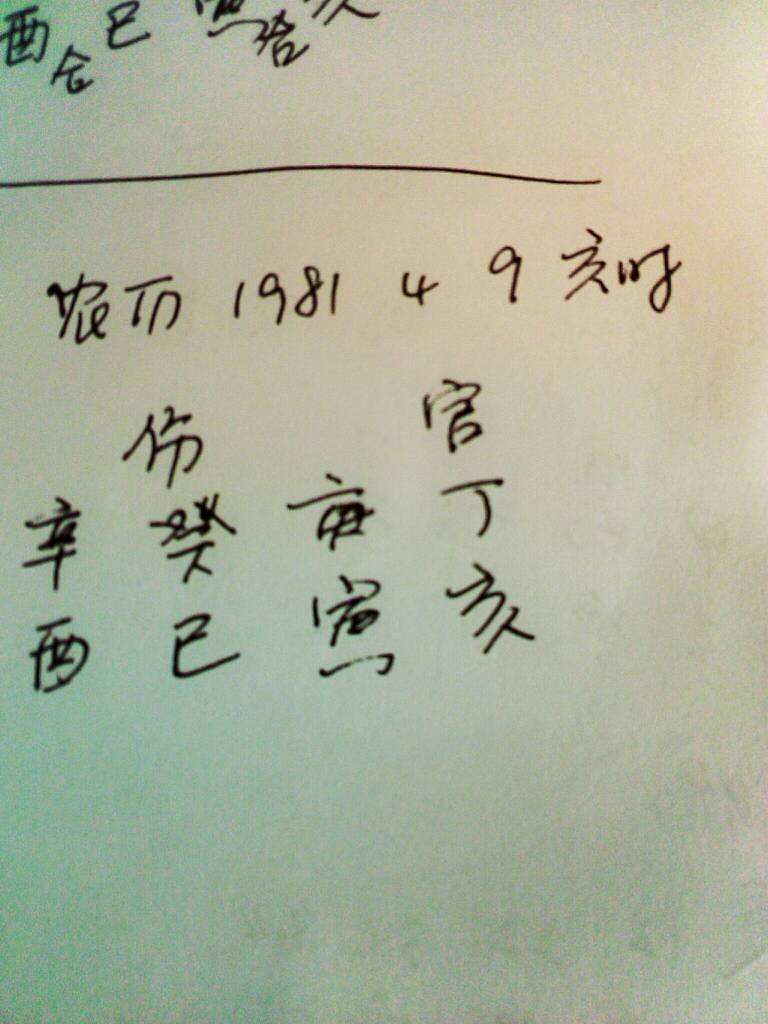 酉合巳 寅合亥
农历 1981 4 9 亥时
伤 官
辛 癸 庚 丁
酉 巳 寅 亥